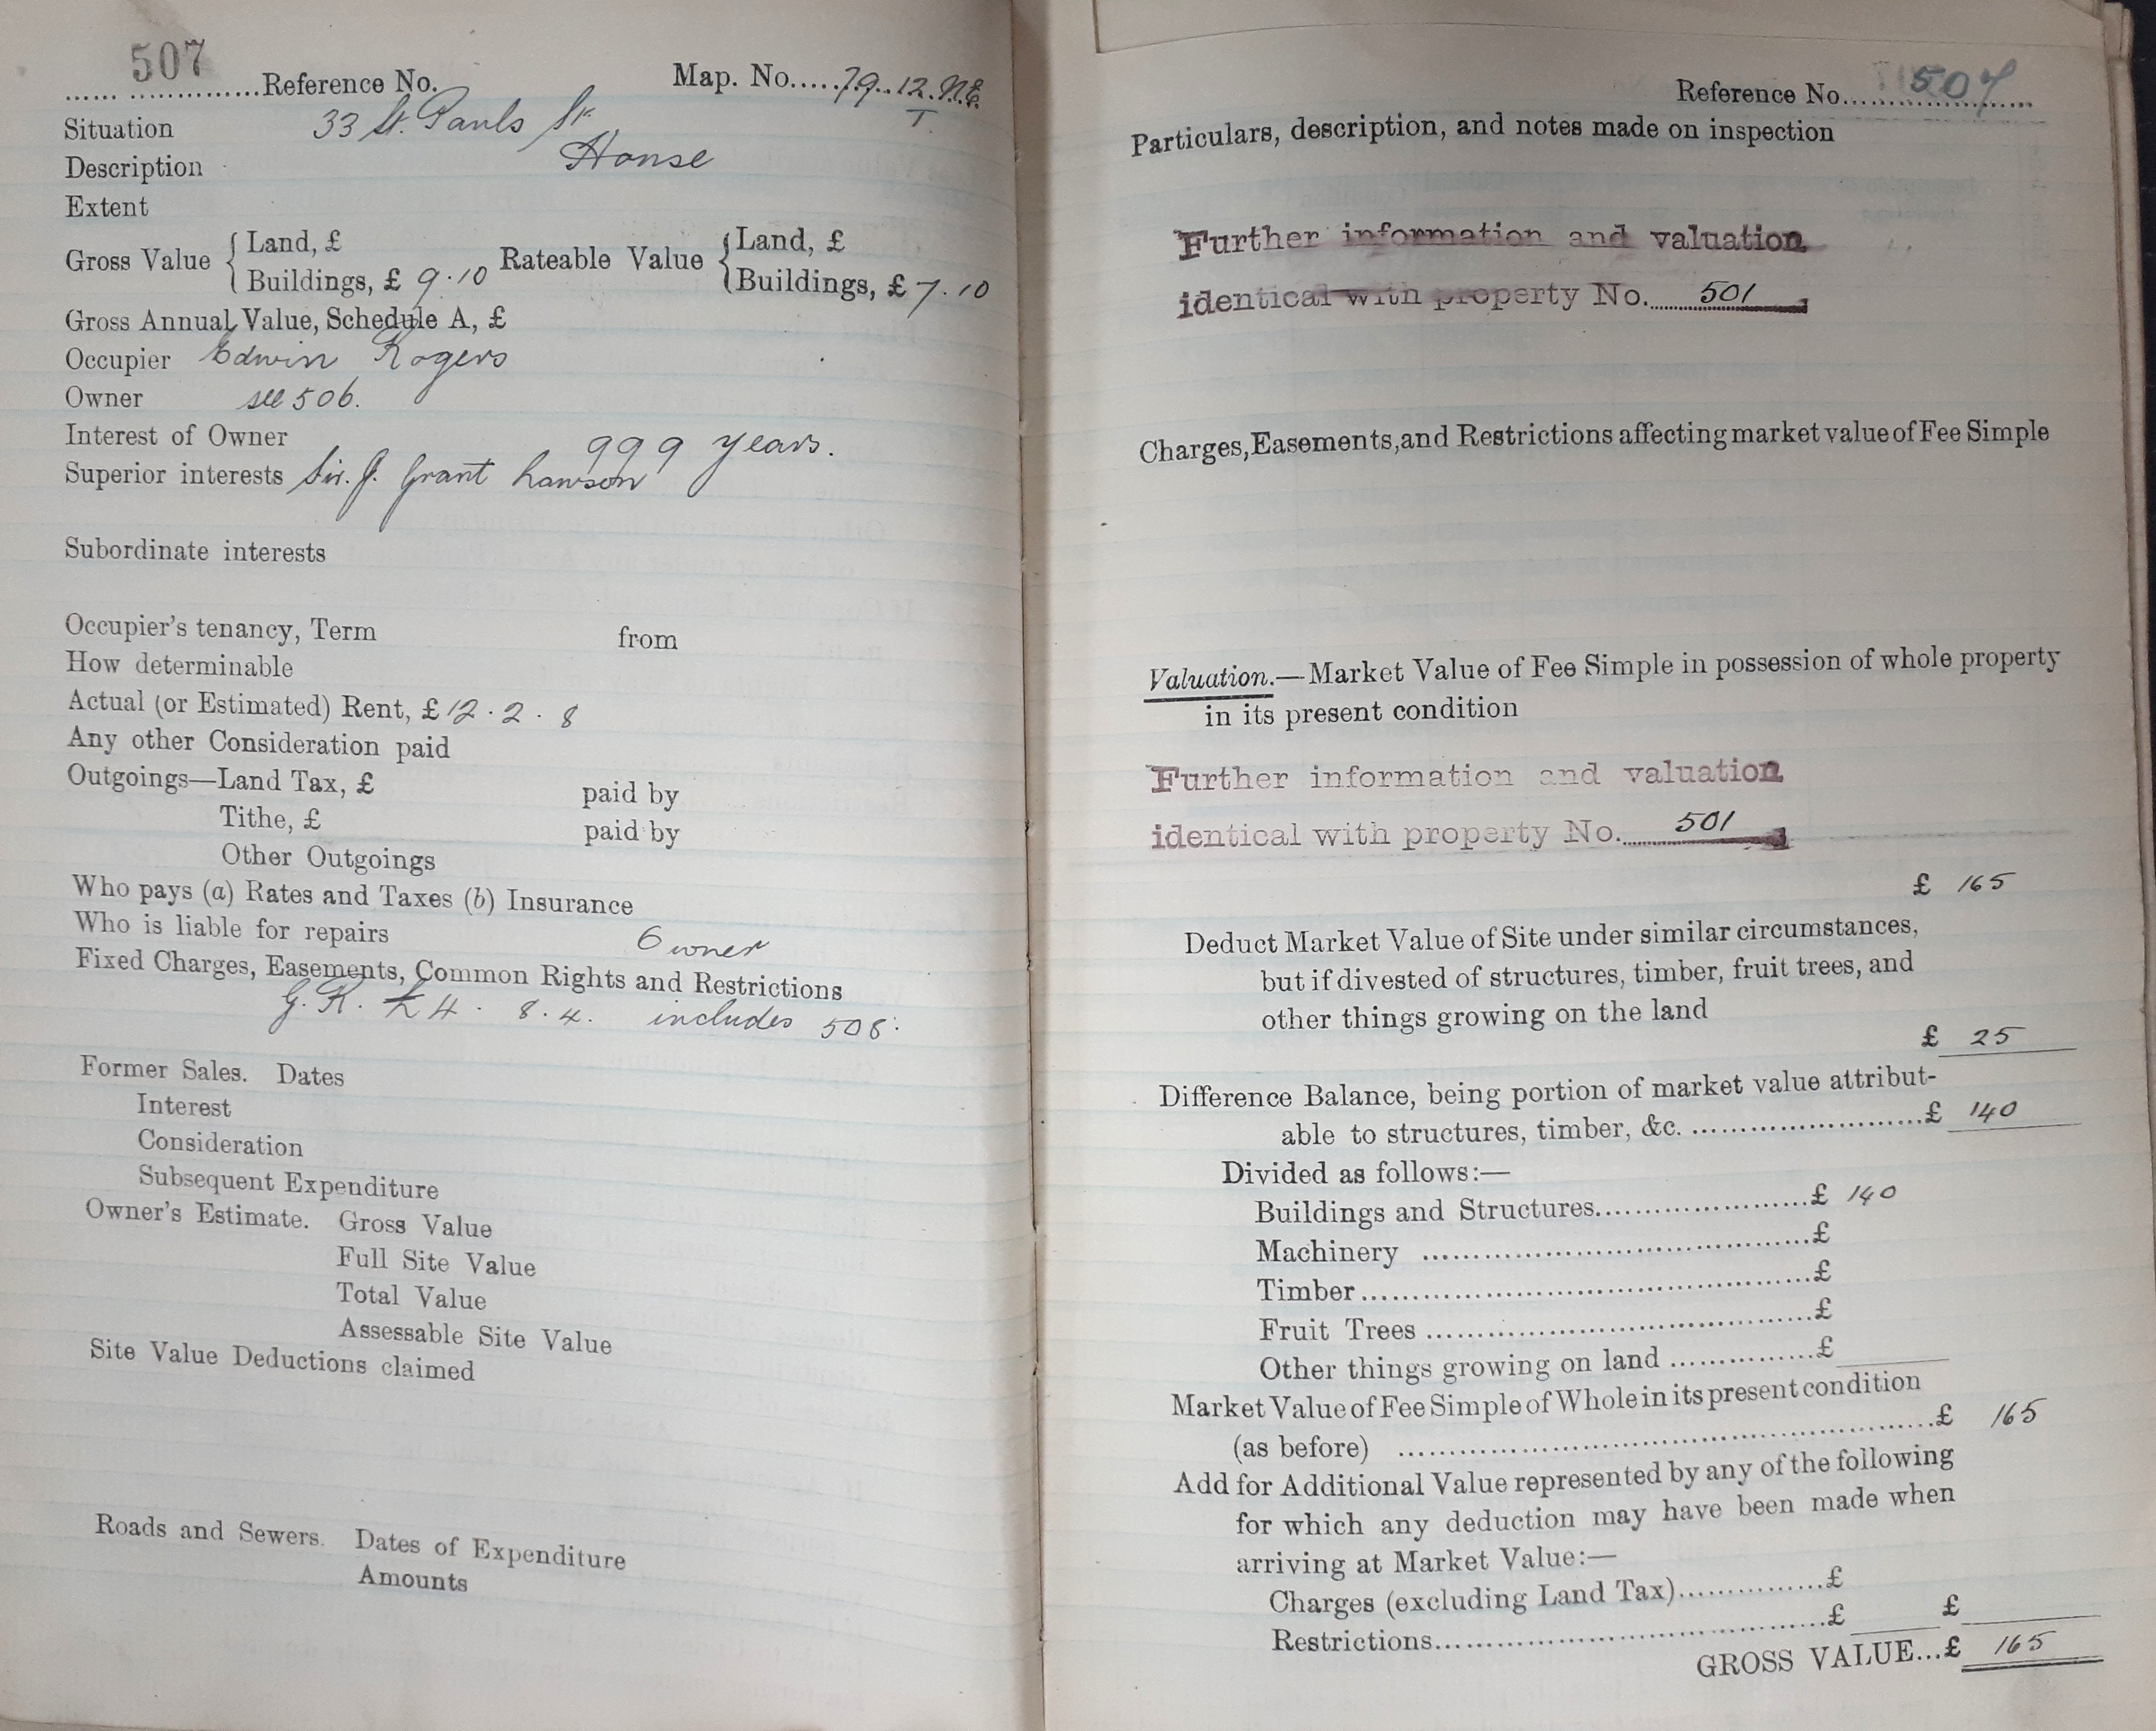 507
...... ..............Reference No. Map. No.....79..12.N.E.
T.
Situation 33 St. Pauls St.
Description House
Extent
Gross Value { Land, £ Rateable Value { Land, £
Buildings, £ 9.10 Buildings, £ 7.10
Gross Annual Value, Schedule A, £
Occupier Edwin Rogers
Owner see 506.
Interest of Owner 999 years.
Superior interests Sir. J. Grant Lawson
Subordinate interests
Occupier's tenancy, Term from
How determinable
Actual (or Estimated) Rent, £ 12.2.8
Any other Consideration paid
Outgoings—Land Tax, £ paid by
Tithe, £ paid by
Other Outgoings
Who pays (a) Rates and Taxes (b) Insurance
Who is liable for repairs Owner
Fixed Charges, Easements, Common Rights and Restrictions
G.R. £4. 8.4. includes 508.
Former Sales. Dates
Interest
Consideration
Subsequent Expenditure
Owner's Estimate. Gross Value
Full Site Value
Total Value
Assessable Site Value
Site Value Deductions claimed
Roads and Sewers. Dates of Expenditure
Amounts
Reference No......507......
Particulars, description, and notes made on inspection
Further information and valuation
identical with property No. 501
Charges, Easements, and Restrictions affecting market value of Fee Simple
Valuation.—Market Value of Fee Simple in possession of whole property
in its present condition
Further information and valuation
identical with property No. 501
£ 165
Deduct Market Value of Site under similar circumstances,
but if divested of structures, timber, fruit trees, and
other things growing on the land
£ 25
Difference Balance, being portion of market value attribut-
able to structures, timber, &c. ........................£ 140
Divided as follows:—
Buildings and Structures......................£ 140
Machinery ........................................£
Timber..............................................£
Fruit Trees .......................................£
Other things growing on land ...............£
Market Value of Fee Simple of Whole in its present condition
(as before) ........................................................£ 165
Add for Additional Value represented by any of the following
for which any deduction may have been made when
arriving at Market Value:—
Charges (excluding Land Tax)...............£
Restrictions.......................................£ £
GROSS VALUE...£ 165